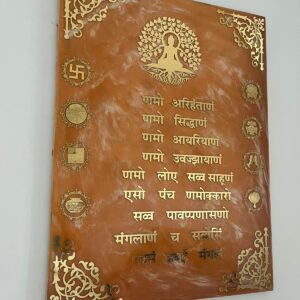 णमो अरिहंताणं
णमो सिद्धाणं
णमो आयरियाणं
णमो उवज्झायाणं
णमो लोए सव्व साहूणं
एसो पंच णमोक्कारो
सव्व पावप्पणासणो
मंगलाणं च सव्वेसिं
मंगलं